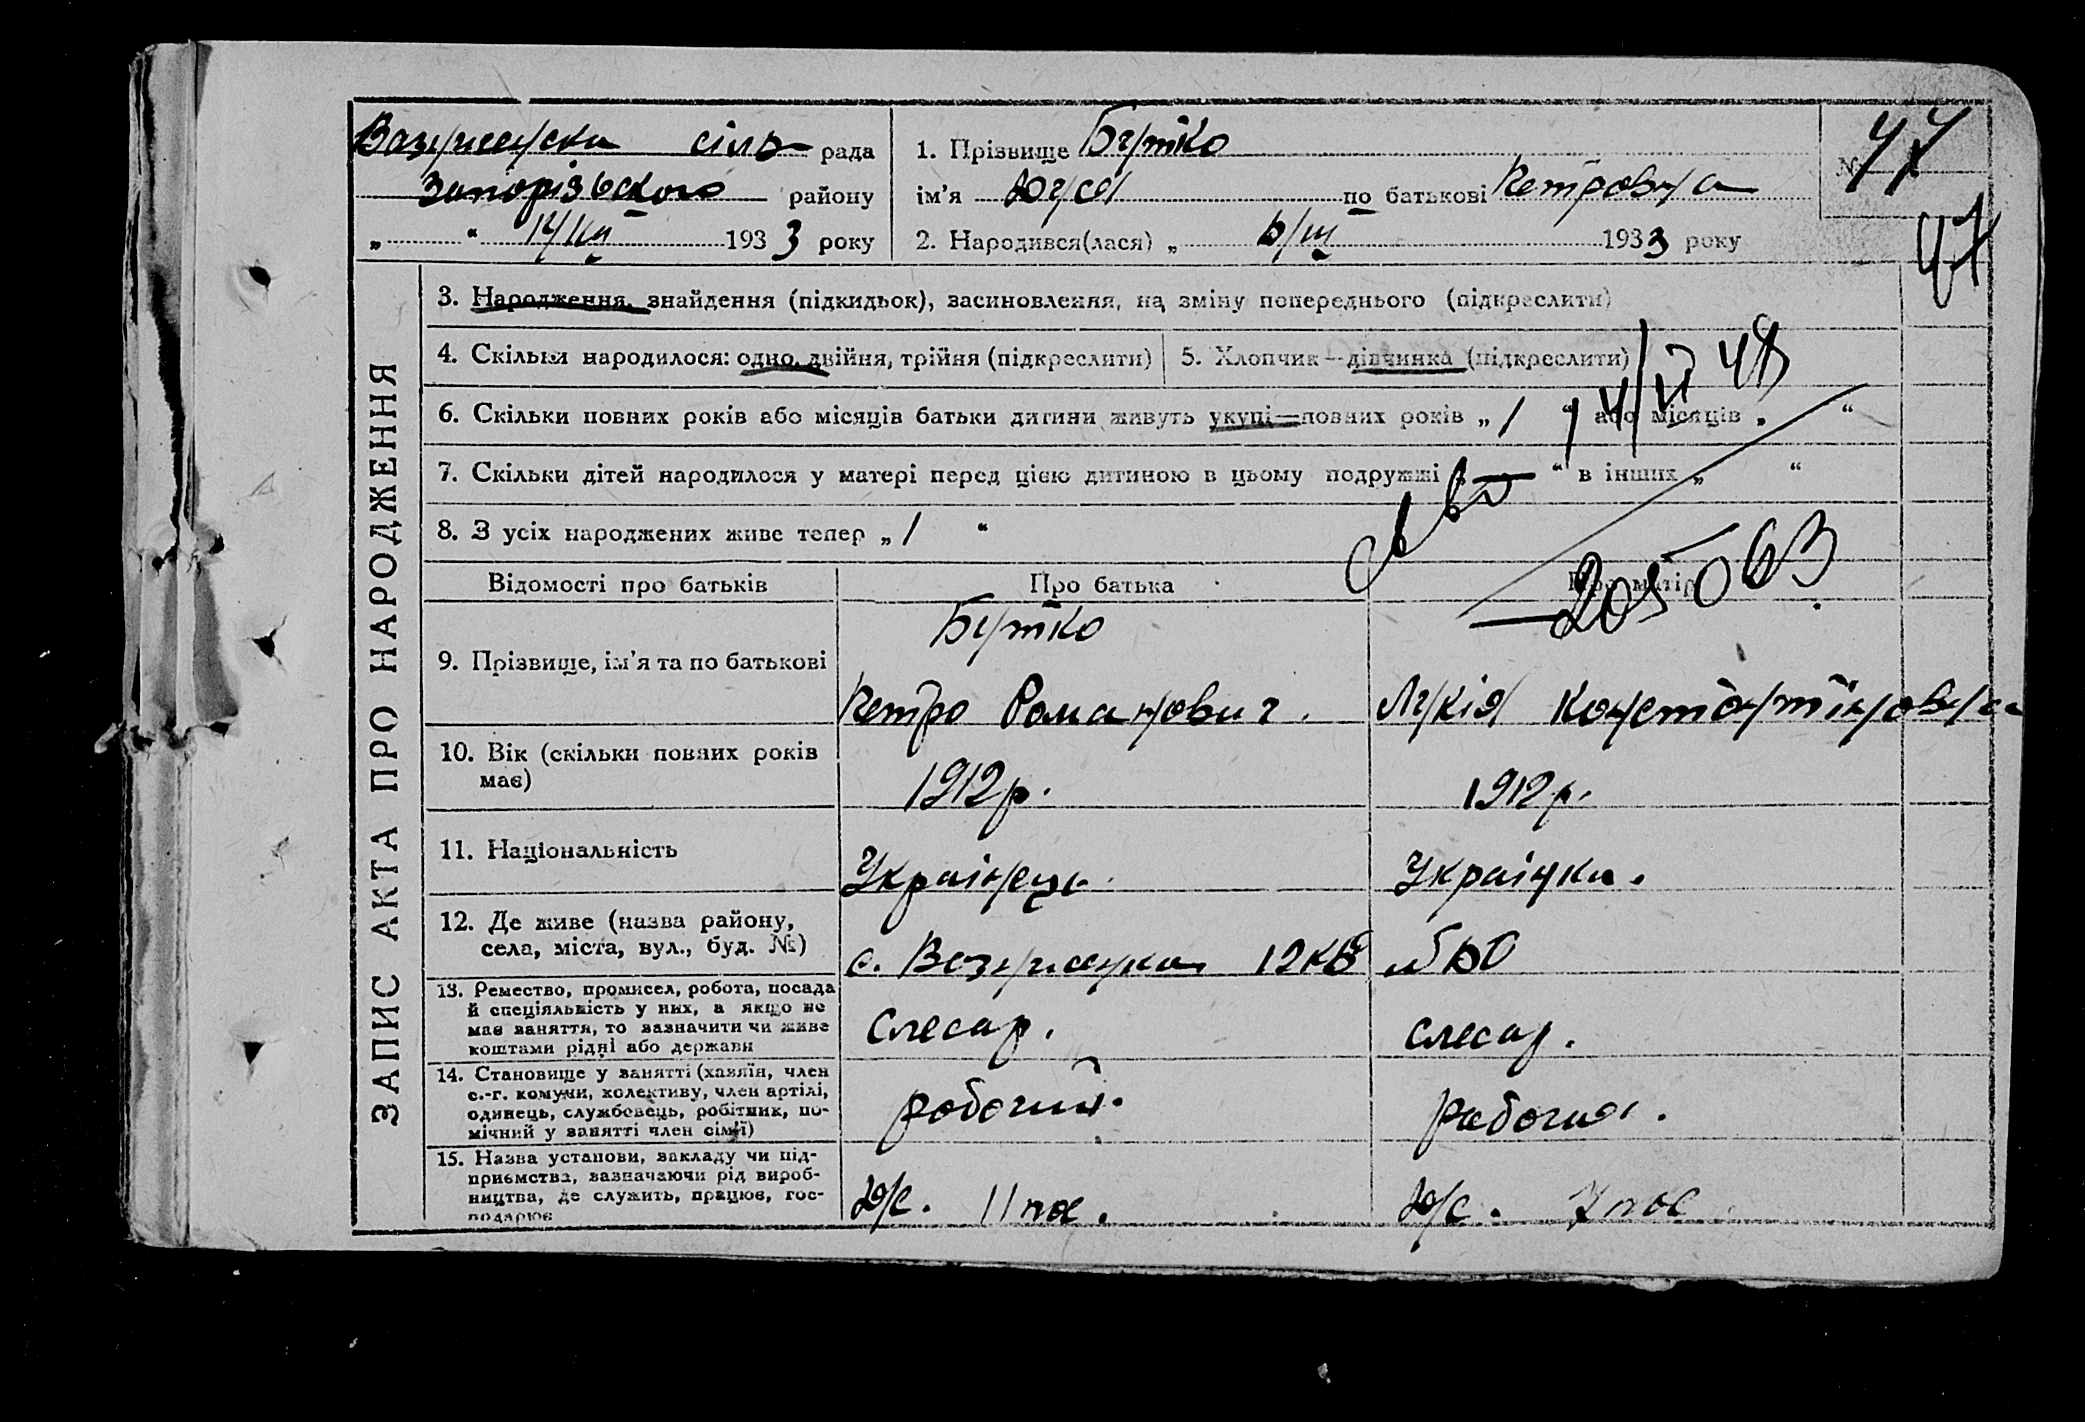 сіль рада
Запорізького району
„ “ 14/III 1933 року
1. Прізвище Бутко
ім’я Дуся по батькові Петровна
2. Народився(лася) „ 1933 року
№ 47
47
ЗАПИС АКТА ПРО НАРОДЖЕННЯ
3. Народження, знайдення (підкидьок), засиновлення, на зміну попереднього (підкреслити)
4. Скільки народилося: одно, двійня, трійня (підкреслити)
5. Хлопчик—дівчинка (підкреслити)
6. Скільки повних років або місяців батьки дитини живуть укупі—повних років „ 1 “ або місяців „ “
7. Скільки дітей народилося у матері перед цією дитиною в цьому подружжі — “ в інших „ “
8. З усіх народжених живе тепер „ 1 “
14/VI 48
205063
Відомості про батьків
Про батька
Про матір
9. Прізвище, ім’я та по батькові
Бутко
Петро Романович.
Лукія Константіновна
10. Вік (скільки повних років має)
1912 р.
1912 р.
11. Національність
Українець.
Українка.
12. Де живе (назва району, села, міста, вул., буд. №)
с. 12 кв
13. Ремество, промисел, робота, посада й спеціяльність у них, а якщо не має заняття, то зазначити чи живе коштами рідні або держави
слесар.
слесар.
14. Становище у занятті (хазяїн, член с.-г. комуни, колективу, член артілі, одинець, службовець, робітник, помічний у занятті член сім’ї)
рабочий.
рабочия.
15. Назва установи, закладу чи підприємства, зазначаючи рід виробництва, де служить, працює, господарює
Д/с. 11 пос.
Д/с. 7 пос